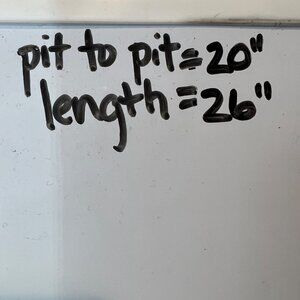 pit to pit=20"
length=26"